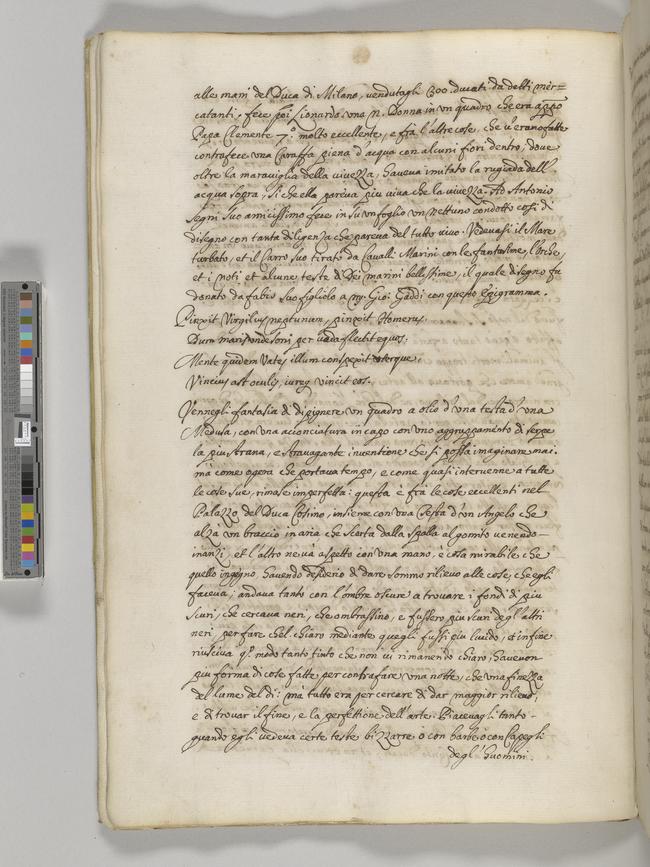 alle mani del Duca di Milano, vendutagli 300. ducati da detti mer=
catanti. fece poi Lionardo una N. Donna in un quadro che era appo
Papa Clemente 7.º molto eccellente, e frà l'altre cose, che v'erano fatte
contrafece una Caraffa piena d'acqua con alcuni fiori dentro, dove
oltre la maraviglia della vivezza, haveva imitato la rugiada dell'
acqua sopra, si che ella pareva piu viva che la vivezza. Ad Antonio
segni suo amicissimo fece in su un foglio un nettuno condotto così di
disegno con tanta diligenza che pareva del tutto vivo. Vedevasi il Mare
turbato, et il Carro suo tirato da Cavalli Marini con le fantasime, l'orche,
et i noti et alcune teste di Dei marini bellissime, il quale disegno fu
donato da fabio suo figliolo a M. Gioi Gaddi con questo Epigramma.
Pinxit Virgilius neptunum, pinxit Homerus.
Dum maris undisoni per vada flectit equos.
Mente quidem Vates illum conspexit uterque,
Vincius ast oculis, iureq vincit eos.
Vennegli fantasia di dipignere un quadro a olio d'una testa d'una
Medusa, con una acconciatura in capo con uno aggruppamento di serpe
la piu strana, e stravagante inventione che si possa imaginare mai.
mà come opera che portava tempo, e come quasi intervenne a tutte
le cose sue, rimase imperfetta: questa è frà le cose eccellenti nel
Palazzo del Duca Cosimo, insieme con una Testa d'un Angelo che
alza un braccio in aria che scorta dalla spalla al gomito venendo
inanzi, et l'altro ne và a petto con una mano. è cosa mirabile che
quello ingegno havendo desiderio di dare sommo rilievo alle cose, che egli
faceva; andava tanto con l'ombre oscure a trovare i fondi di piu
scuri, che cercava neri, che ombrassino, e fussero piu scuri degl'altri
neri, per fare ch'el chiaro mediante quegli fussi piu lucido, et infine
riusciva qº modo tanto tinto che non vi rimanendo chiaro, havevon
piu forma di cose fatte per contrafare una notte, che una finezza
del lume del di: mà tutto era per cercare di dar maggior rilievo,
e di trovar il fine, e la perfettione dell'arte. Piacevagli tanto
quando egli vedeva certe teste bizzarre o con barbe o con Capegli
degl' huomini.